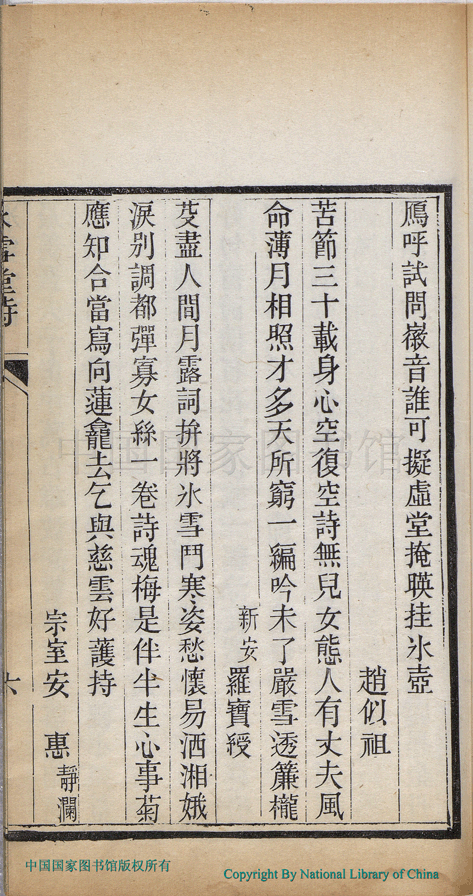 鴈呼試問徽音誰可擬虛堂掩暎挂氷壺
趙似祖
苦節三十載身心空復空詩無兒女態人有丈夫風
命薄月相照才多天所窮一編吟未了嚴雪透簾櫳
新安 羅寶綬
芟盡人間月露詞拚將氷雪鬥寒姿愁懷易洒湘娥
淚别調都彈寡女絲一卷詩魂梅是伴半生心事菊
應知合當寫向蓮龕去乞與慈雲好護持
宗室安 惠 靜瀾
氷雪堂詩 六
中国国家图书馆
中国国家图书馆版权所有
Copyright By National Library of China